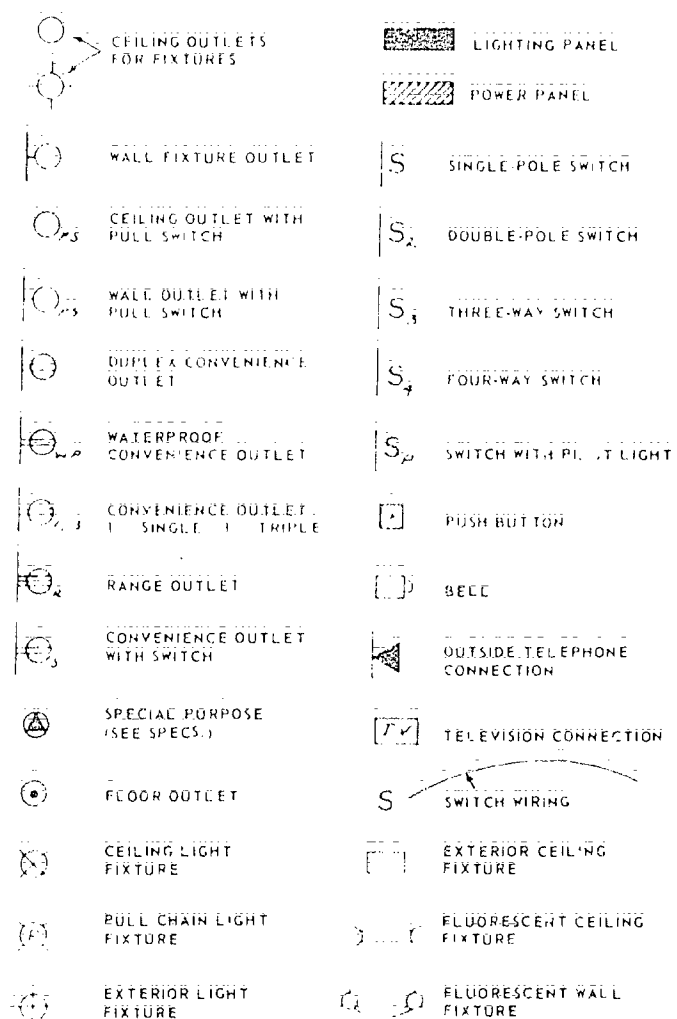 CEILING OUTLETS
FOR FIXTURES
WALL FIXTURE OUTLET
CEILING OUTLET WITH
PULL SWITCH
PS
WALL OUTLET WITH
PULL SWITCH
PS
DUPLEX CONVENIENCE
OUTLET
WATERPROOF
CONVENIENCE OUTLET
WP
CONVENIENCE OUTLET
1 SINGLE 3 TRIPLE
1,3
RANGE OUTLET
R
CONVENIENCE OUTLET
WITH SWITCH
S
SPECIAL PURPOSE
(SEE SPECS.)
FLOOR OUTLET
CEILING LIGHT
FIXTURE
PULL CHAIN LIGHT
FIXTURE
P
EXTERIOR LIGHT
FIXTURE
LIGHTING PANEL
POWER PANEL
S
SINGLE-POLE SWITCH
S2
DOUBLE-POLE SWITCH
S3
THREE-WAY SWITCH
S4
FOUR-WAY SWITCH
SP
SWITCH WITH LIGHT
PUSH BUTTON
BELL
OUTSIDE TELEPHONE
CONNECTION
TV
TELEVISION CONNECTION
S
SWITCH WIRING
EXTERIOR CEILING
FIXTURE
FLUORESCENT CEILING
FIXTURE
FLUORESCENT WALL
FIXTURE